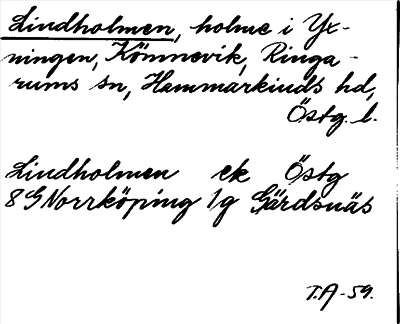 Lindholmen, holme i Yx-
ningen, Kömnevik, Ringa-
rums sn, Hammarkinds hd,
Östg. l.
Lindholmen ek Östg
8 G Norrköping 1g Gärdsnäs
T.A-59.